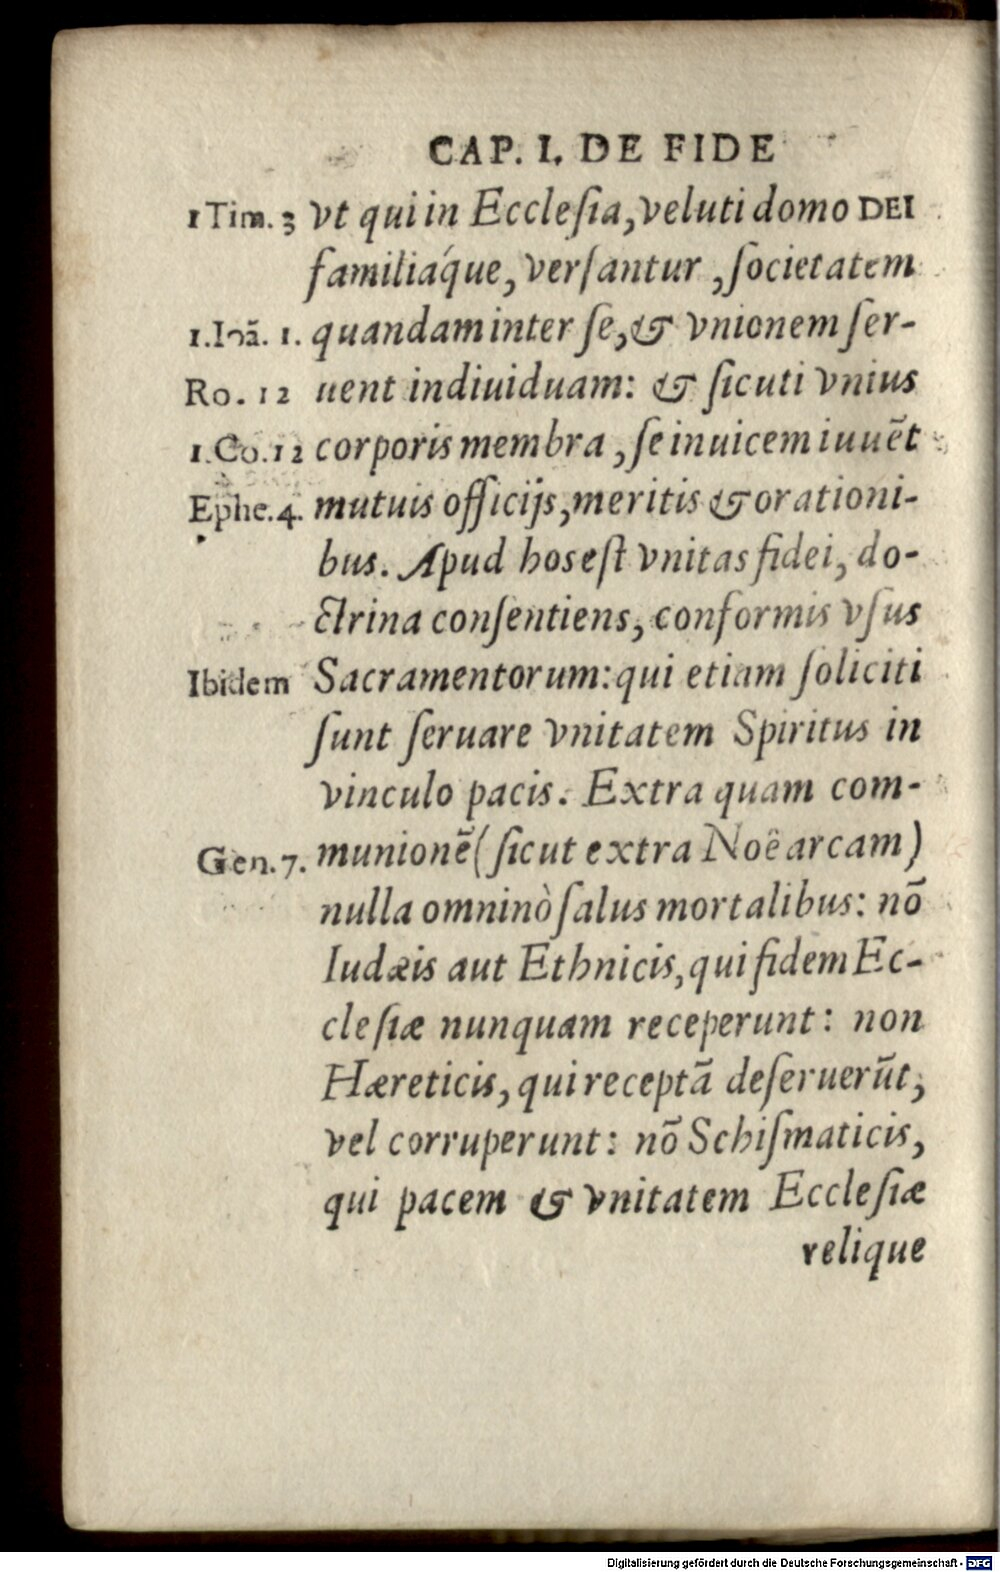 CAP. I. DE FIDE
1 Tim. 3 vt qui in Eccleſia, veluti domo DEI
familiáque, verſantur, ſocietatem
1. Ioã. 1. quandam inter ſe, & vnionem ſer-
Ro. 12 uent indiuiduam: & ſicuti vnius
1. Co. 12 corporis membra, ſe inuicem iuuẽt
Ephe. 4. mutuis officijs, meritis & orationi-
bus. Apud hos eſt vnitas fidei, do-
ctrina conſentiens, conformis vſus
Ibidem Sacramentorum: qui etiam ſoliciti
ſunt ſeruare vnitatem Spiritus in
vinculo pacis. Extra quam com-
Gen. 7. munionẽ (ſicut extra Noê arcam)
nulla omninò ſalus mortalibus: nõ
Iudæis aut Ethnicis, qui fidem Ec-
cleſiæ nunquam receperunt: non
Hæreticis, qui receptã deſeruerũt,
vel corruperunt: nõ Schiſmaticis,
qui pacem & vnitatem Eccleſiæ
relique
Digitalisierung gefördert durch die Deutsche Forschungsgemeinschaft - DFG